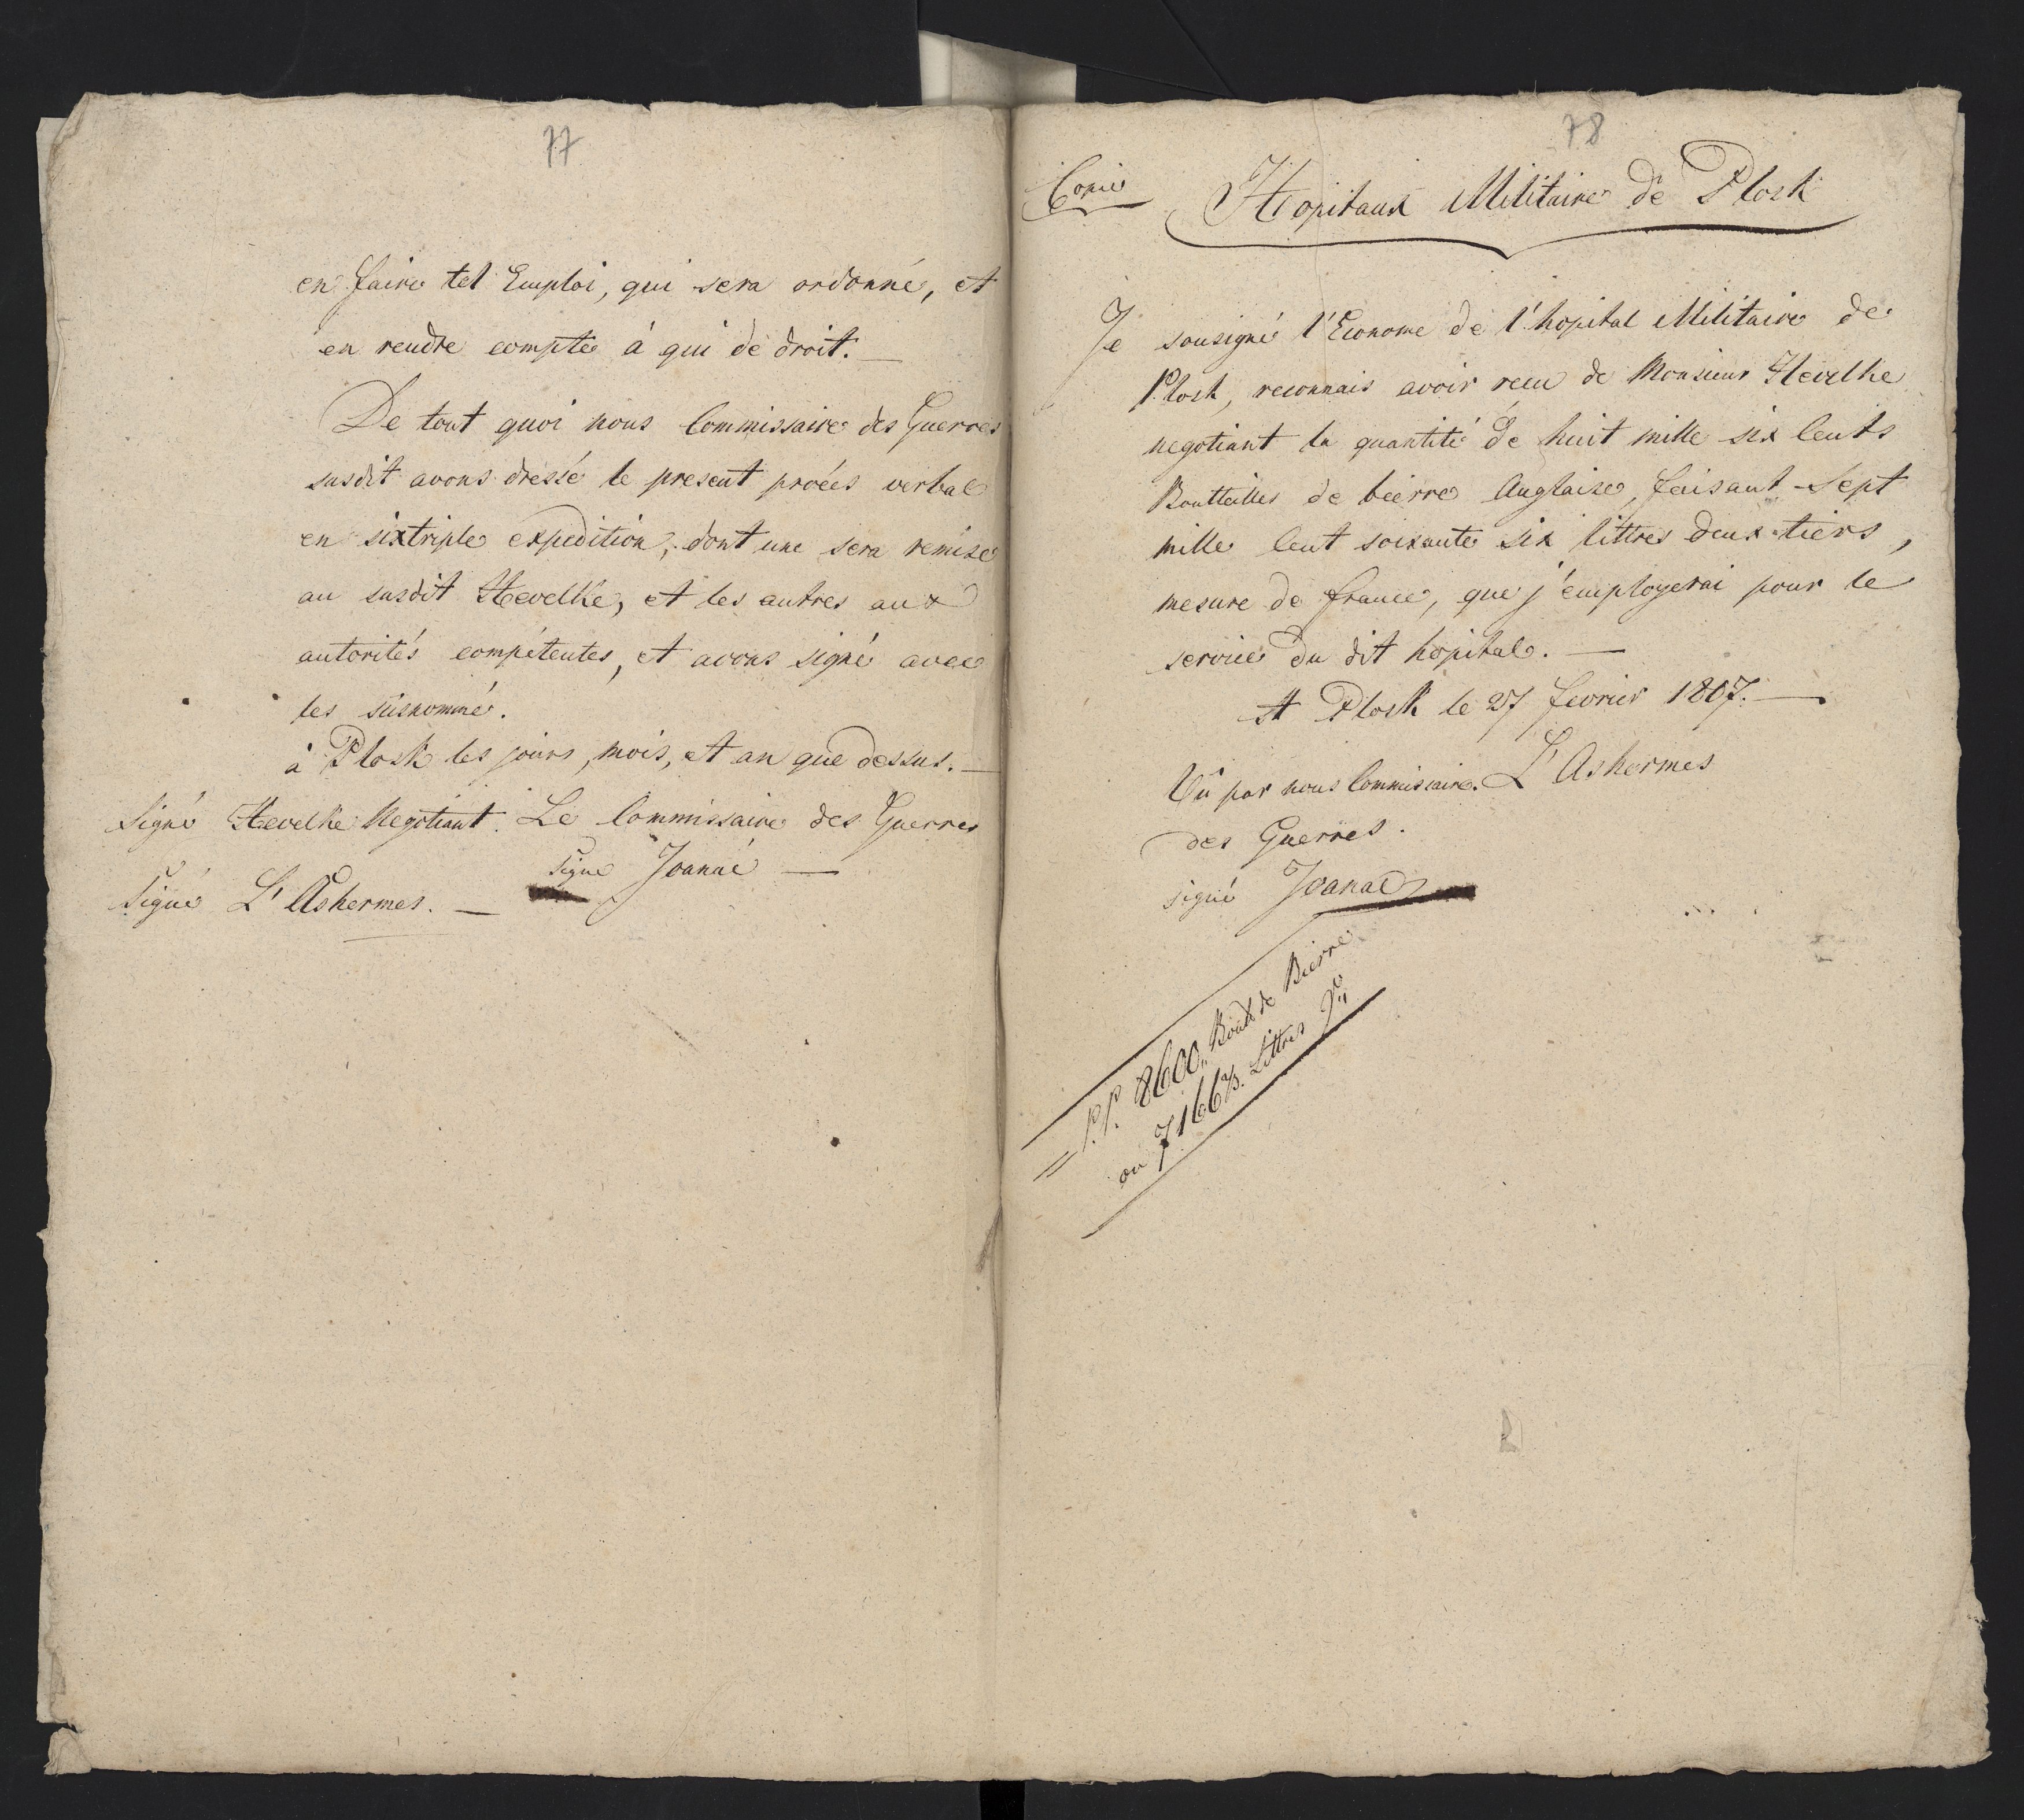 77
en faire tel Emploi, qui sera ordonné, et
en rendre compte à qui de droit. —
De tout quoi nous Commissaire des Guerres
susdit avons dressé le present procés verbal
en sixtriple expedition, dont une sera remise
au susdit Hevelke, et les autres aux
autorités compétentes, et avons signé avec
les susnommé.
à Plosk les jours, mois, et an que dessus. —
Signé Hevelke Negotiant. Le Commissaire des Guerres
signé Joanné —
Signé L' Ashermes. —
78
Copie
Hopitaux Militaire de Plosk
Je sousigné l'Econome de l'hopital Militaire de
Plosk, reconnais avoir recu de Monsieur Hevelke
negotiant la quantité de huit mille six Cents
Boutteilles de bierre Anglaise, faisant Sept
mille Cent soixante six littres deux tiers,
mesure de france, que j'employerai pour le
service du dit hopital. —
A Plosk le 27 fevrier 1807. —
L' Ashermes
Vû par nous Commissaire
des Guerres.
signé Joanné
= P.P. 8600 Boutt de Bierre
ou 7166 2/3. Littres